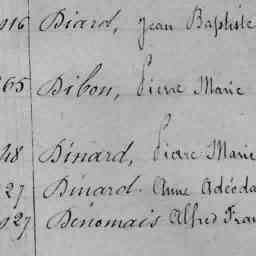 916 Diard, Jean Baptiste
65 Dibon, Pierre Marie
48 Dinard, Pierre Marie
27 Dinard. Anne Adéoda
927 Dénomais Alfred Fran